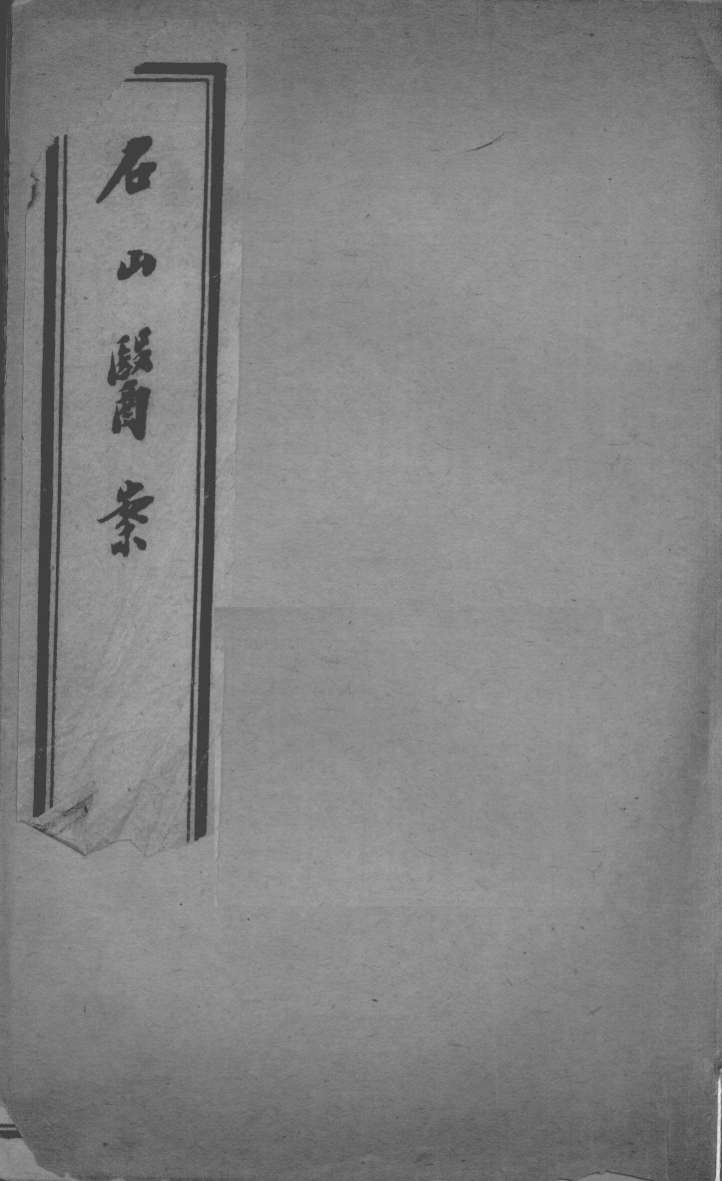 石山醫案